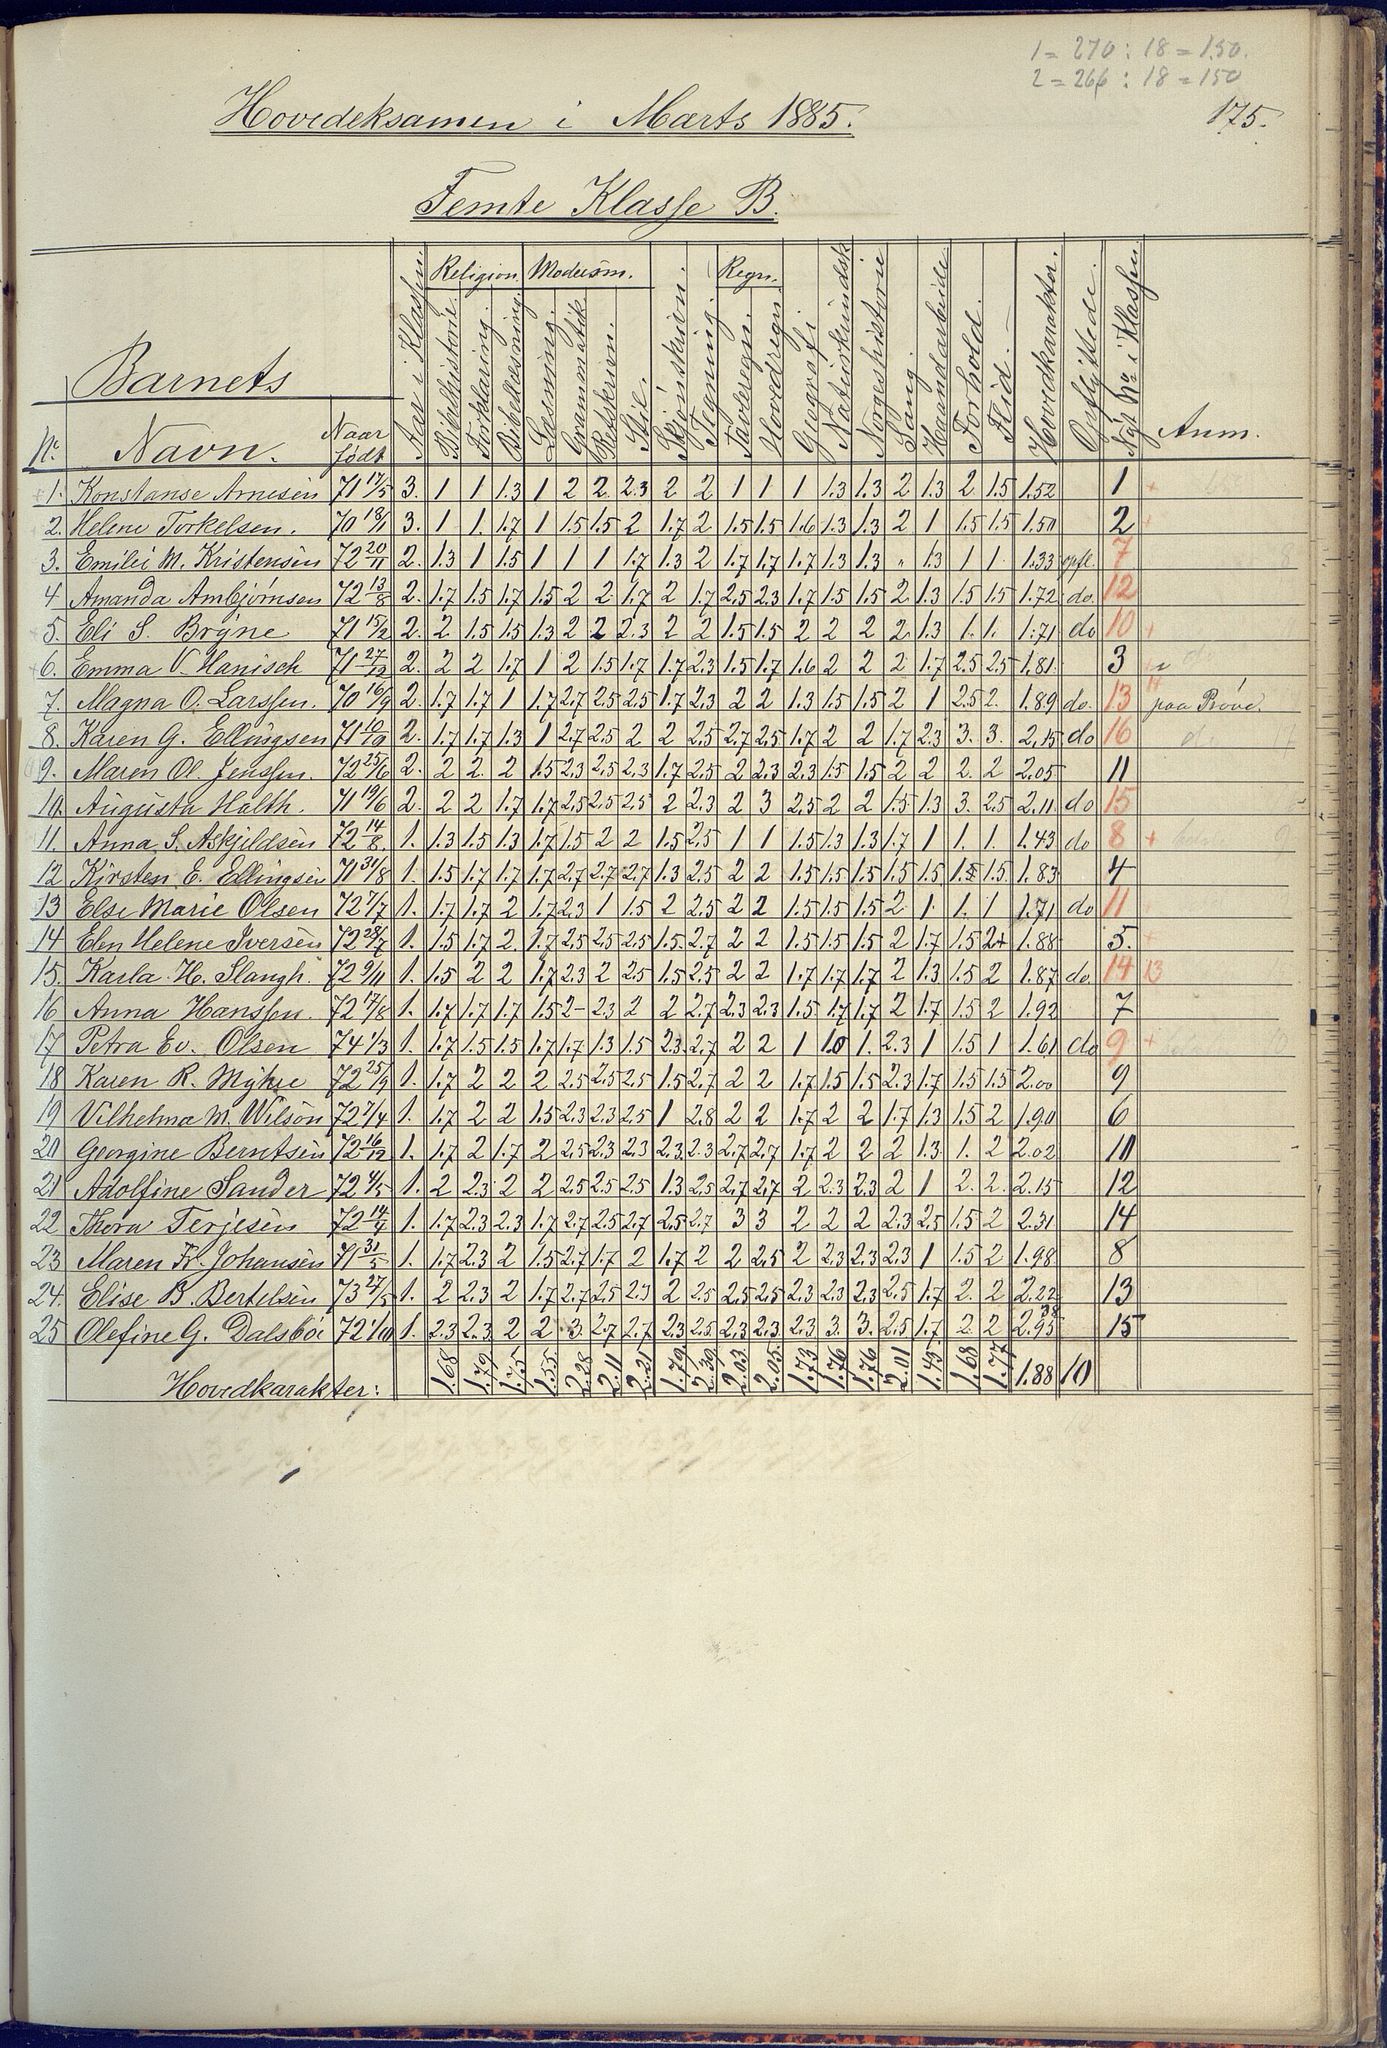 1 = 270 : 18 = 1.50.
2 = 266 : 18 = 150
175.
Hovedeksamen i Marts 1885.
Femte Klasse B.
Religion. Modersm. Regn.
Barnets
No. Navn. Naar født Aar i Klassen. Bibelhistorie. Forklaring. Bibellæsning. Læsning. Grammatik Retskrivn. Stil. Skjönskrivn. Tegning. Tavleregn. Hovedregn. Geografi Naturkundsk Norgeshistorie Sang. Haandarbeide Forhold. Flid. Hovedkarakter. Opflyttede. Nyt No. i Klassen. Anm.
1. Konstanse Arnesen 71 17/5 3. 1 1 1.3 1 2 2. 2.3 2 2 1 1. 1 1.3 1.3 2 1.3 2. 1.5 1.52 1 +
2. Helene Torkelsen. 70 18/1 3. 1 1. 1.7 1 1.5 1.5 2 1.7 2 1.5 1.5 1.6 1.3 1.3 2 1 1.5 1.5 1.50 2
3. Emilei M. Kristensen 72 20/11 2. 1.3 1 1.5 1 1 1 1.7 1.3 2 1.7 1.7 1.7 1.3 1.3 " 1.3 1 1. 1.33 opfl. 7
4 Amanda Ambjørnsen 72 13/8 2. 1.7 1.5 1.7 1.5 2 2. 1.7 2 1.7 2.5 2.3 1.7 1.5 1.5 2 1.3 1.5 1.5 1.72 do. 12
5. Eli S. Brÿne 71 15/2 2. 2 1.5 1.5 1.3 2 2 2.3 2 2 1.5 1.5 2 2 2 2. 1.3 1. 1. 1.71 do 10 +
6. Emma V. Hanisch 71 27/12 2. 2 2 1.7 1 2 1.5 1.7 1.7 2.3 1.5 1.7 1.6 2 2 2 1.7 2.5 2.5 1.81. 3
7. Magna O. Larssen. 70 16/9 2. 1.7 1.7 1 1.7 2.7 2.5 2.5 1.7 2.3 2 2 1.3 1.5 1.5 2 1 2.5 2. 1.89 do. 13 paa Prøve.
8. Karen G. Ellingsen 71 10/10 2. 1.7 1.7 1.3 1 2.7 2.5 2 2 2.5 2.7 2.5 1.7 2 2 1.7 2.3 3. 3. 2.15 do 16
9. Maren Ol. Jenssen. 72 25/6 2. 2 2. 2 1.5 2.3 2.5 2.3 1.7 2.5 2 2.3 2.3 1.5 1.5 2 2 2. 2 2.05 11
10. Augusta Holth. 71 19/6 2. 2 2 1.7 1.7 2.5 2.5 2.5 2 2.3 2 3 2.5 2 2 1.5 1.3 3. 2.5 2.11 do 15
11. Anna S. Askjeldsen 72 14/8. 1. 1.3 1.5 1.3 1.7 1.5 2 2 1.5 2.5 1 1 1.5 1.3 1.3 1.7 1 1. 1. 1.43 do 8 +
12 Kirsten E. Ellingsen 71 31/8 1. 1.5 1.7 1.7 1.7 2.7 2.7 2.7 1.3 2.5 2 2 1.5 1.5 1.5 1.5 1.5 1.5 1.5. 1.83 4
13 Else Marie Olsen 72 7/7 1. 1.7 1.7 2 1.7 2.3 1 1.5 2 2.5 2 2 1.5 1.5 1.5 2 1 1. 1 1.71 do 11
14 Elen Helene Iversen 72 28/7 1. 1.5 1.7 2. 1.7 2.5 2.5 2.5 1.5. 2.7 2 2 1.5 1.5 1.5 2 1.7 1.5 2+ 1.88 5. +
15. Karla H. Slangh. 72 9/11 1. 1.5 2 2 1.7 2.3 2 2.5 1.5 2.5 2 2 1.7 1.7 1.7 2 1.3 1.5 2 1.87 do. 14 13
16 Anna Hanssen. 72 17/8 1. 1.7 1.7 1.7 1.5 2- 2.3 2 2 2.7 2.3 2.3 1.5 1.7 1.7 2 1.7 1.5 2 1.92 7
17 Petra Ev. Olsen 74 1/3 1. 1.7 1.5 1.5 1.7 1.7 1.3 1.5 2.3. 2.7 2 2 1 1.0 1. 2.3 1 1.5 1 1.61 do 9 +
18 Karen R. Mÿhre 72 25/9 1. 1.7 2 2 2 2.5 2.5 2.5 1.5 2.7 2 2 1.7 1.5 1.5 2.3 1.7 1.5 1.5 2.00 9
19 Vilhelma M. Wilson 72 7/4 1. 1.7 2 2 1.5 2.3 2.3 2.5 1 2.8 2 2 1.7 2 2 1.7 1.3 1.5 2 1.90 6
20 Georgine Berntsen 72 16/12 1. 1.7 2 1.7 2 2.5 2.3 2.3 2.3 2.3 2.7 2.7 1.7 2 2 2 1.3 1. 2 2.02 10
21 Adolfine Sander 72 4/5 1. 2 2.3 2 2 2.5 2.5 2.5 1.3 2.5 2.7 2.7 2 2.3 2.3 2 1 2. 2. 2.15 12
22 Thora Terjesen 72 14/4 1. 1.7 2.3 2.3 1.7 2.7 2.5 2.7 2.5 2.7 3 3 2 2 2 2.3 2.5 1.5 2 2.31 14
23 Maren Fr. Johansen 71 31/5 1. 1.7 2.3 2 1.5 2.7 1.7 2 1.7 2 2 2.5 2 2.3 2.3 2.3 1 1.5 2 1.98 8
24. Elise B. Bertelsen 73 27/5 1. 2 2.3 2 1.7 2.7 2.5 2.3 2 2.5 2.5 2.5 2.3 2.3 2.3 2.5 1.7 2. 2 2.22 13
25 Olefine G. Dalsböe 72 1/10 1. 2.3 2.3 2 2 3. 2.7 2.7 2.3 2.5. 2.3 2.3. 2.3 3. 3. 2.5 1.7 2. 2 2.38 15
Hovedkarakter: 1.68 1.79 1.75 1.55 2.28 2.11 2.21 1.79 2.39 2.03 2.05 1.73 1.76 1.76 2.01 1.45 1.68 1.77 1.88 10